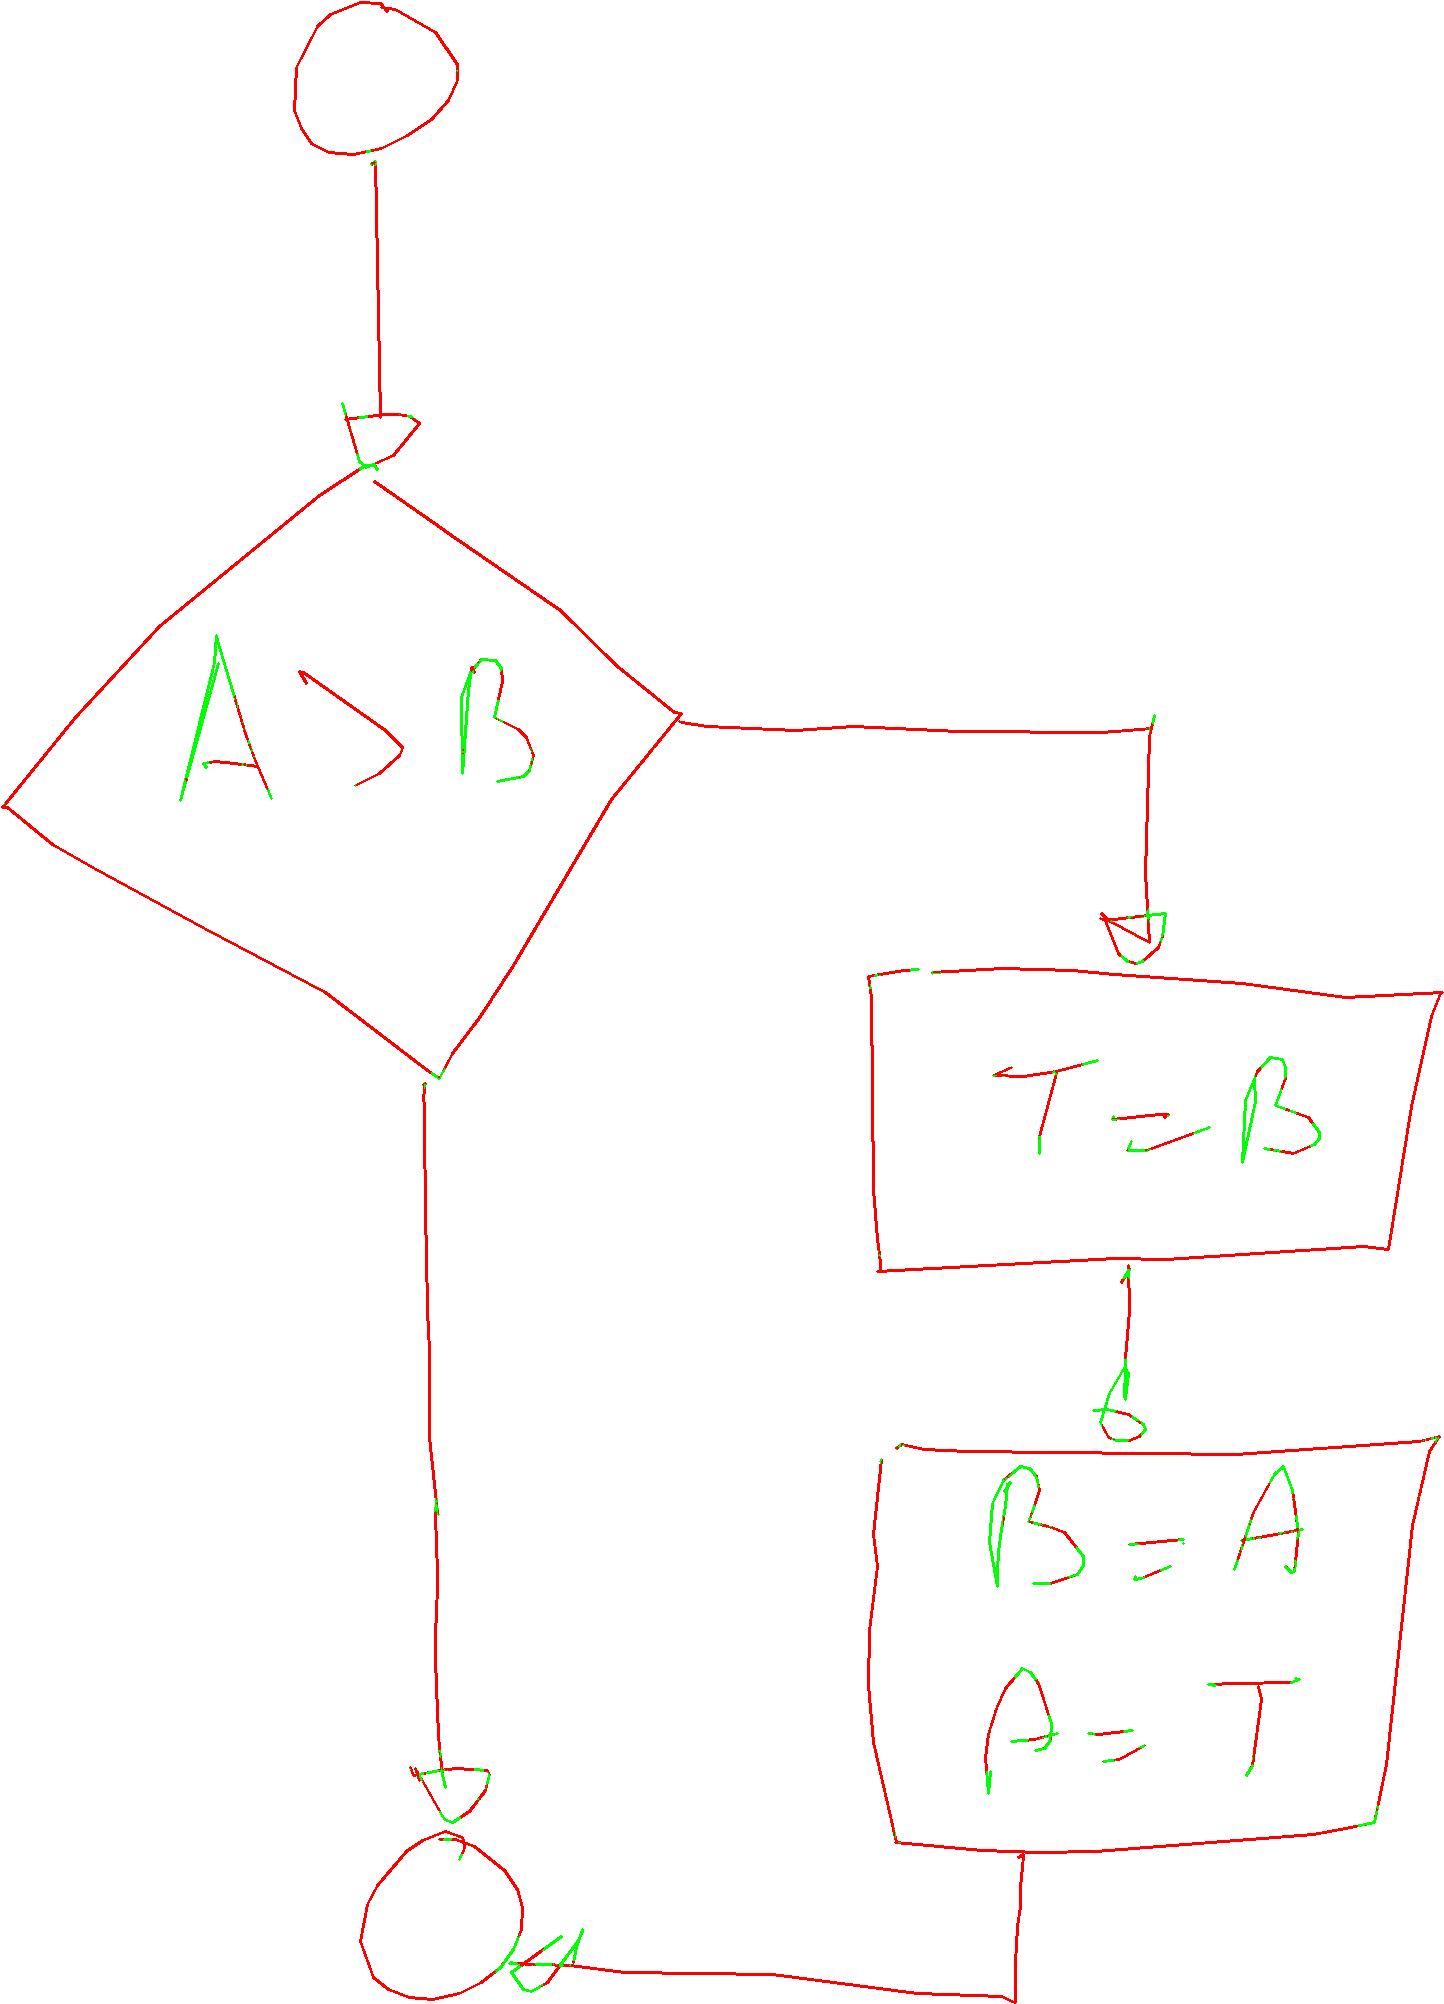 A > B
T = B
B = A
A = T